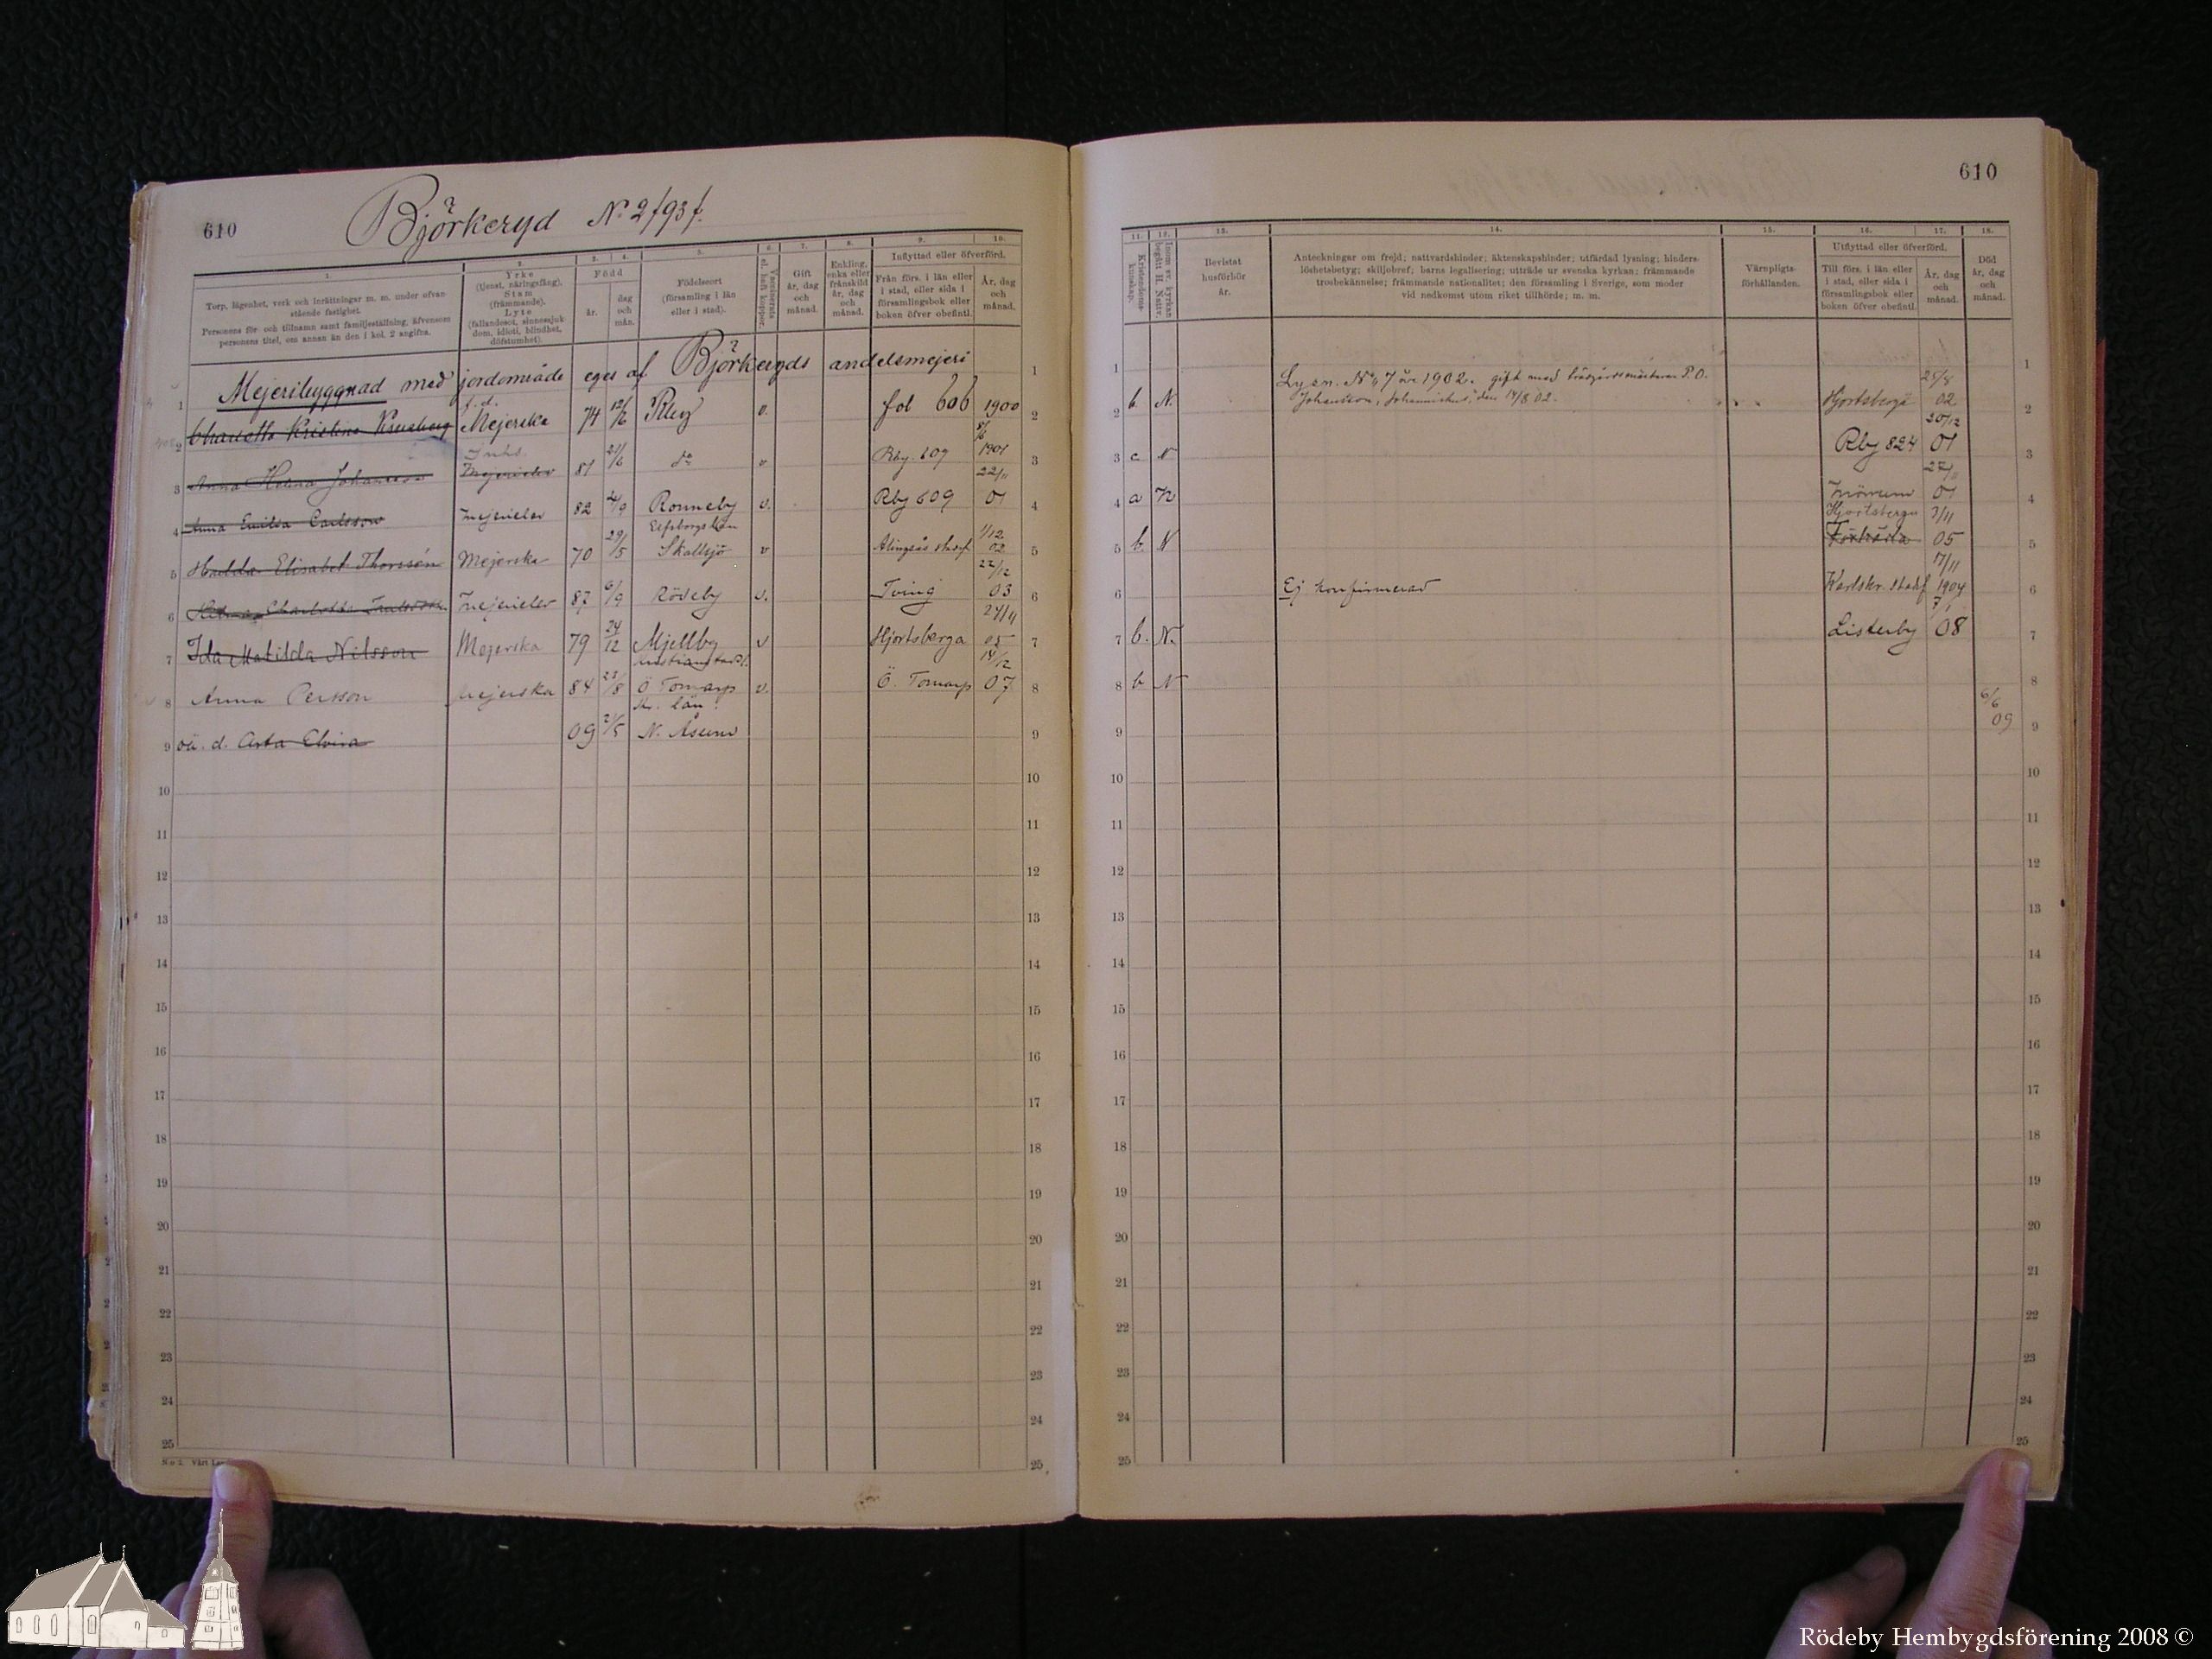 610
Björkeryd No 2/93f.
1. 2. 3. 4. 5. 6. 7. 8. 9. 10.
Torp, lägenhet, verk och inrättningar m. m. under ofvan
stående fastighet.
Personens för- och tillnamn samt familjeställning, äfvensom
personens titel, om annan än den i kol. 2 angifna.
Yrke
(tjenst, näringsfång).
Stam
(främmande).
Lyte
(fallandesot, sinnessjuk-
dom, idioti, blindhet,
döfstumhet).
Född
år.
dag
och
mån.
Födelseort
(församling i län
eller i stad).
Vaccinerats
el. haft koppor.
Gift
år, dag
och
månad.
Enkling,
enka eller
frånskild
år, dag
och
månad.
Inflyttad eller öfverförd.
Från förs. i län eller
i stad, eller sida i
församlingsbok eller
boken öfver obefintl.
År, dag
och
månad.
1 Mejeribyggnad med jordområde eges af Björkeryds andelsmejeri 1
f. d.
2 Charlotta Kristina Mejerska 74 12/6 Rby v. fol 606 1900 2
3 Anna Helena Johansson Mejerielev 81 21/6 do v Rby. 609 1901 3
22/11
4 Anna Emilia Carlsson Mejerielev 82 4/9 Ronneby v. Rby 609 01 4
Elfsborgs län
5 Hulda Elisabet Thorssén Mejerska 70 29/5 Skallsjö v Alingsås stadsf 1/12 02 5
22/12
6 Charlotta Mejerielev 87 6/9 Rödeby v. Tving 03 6
24/11
7 Ida Matilda Nilsson Mejerska 79 24/12 Mjellby v Hjortsberga 05 7
14/12
8 Anna Persson Mejerska 84 23/8 Ö Tomarp v. Ö. Tomarp 07 8
Kr. län
9 oä. d. Asta Elvira 09 21/5 N. Åsum 9
10 10
11 11
12 12
13 13
14 14
15 15
16 16
17 17
18 18
19 19
20 20
21 21
22 22
23 23
24 24
25 25
610
11. 12. 13. 14. 15. 16. 17. 18.
Kristendoms-
kunskap.
Inom sv. kyrkan
begått H. Nattv.
Bevistat
husförhör
år.
Anteckningar om frejd; nattvardshinder; äktenskapshinder; utfärdad lysning; hinders-
löshetsbetyg; skiljobref; barns legalisering; utträde ur svenska kyrkan; främmande
trosbekännelse; främmande nationalitet; den församling i Sverige, som moder
vid nedkomst utom riket tillhörde; m. m.
Värnpligts-
förhållanden.
Utflyttad eller öfverförd.
Till förs. i län eller
i stad, eller sida i
församlingsbok eller
boken öfver obefintl.
År, dag
och
månad.
Död
år, dag
och
månad.
1 1
Lysn. No 7 år 1902. gift med trädgårdsmästaren P. O. 25/8
2 b. N. Johansson, Johannishus, den 14/8 02. Hjortsberga 02 2
20/12
3 c N Rby 824 01 3
4 a N Mörrum 01 4
Hjortsberga 3/11
5 b. N 05 5
17/11
6 Ej konfirmerad Karlskr. stadsf 1904 6
7 b. N. Listerby 08 7
8 b N 8
6/6
9 09 9
10 10
11 11
12 12
13 13
14 14
15 15
16 16
17 17
18 18
19 19
20 20
21 21
22 22
23 23
24 24
25 25
Rödeby Hembygdsförening 2008 ©